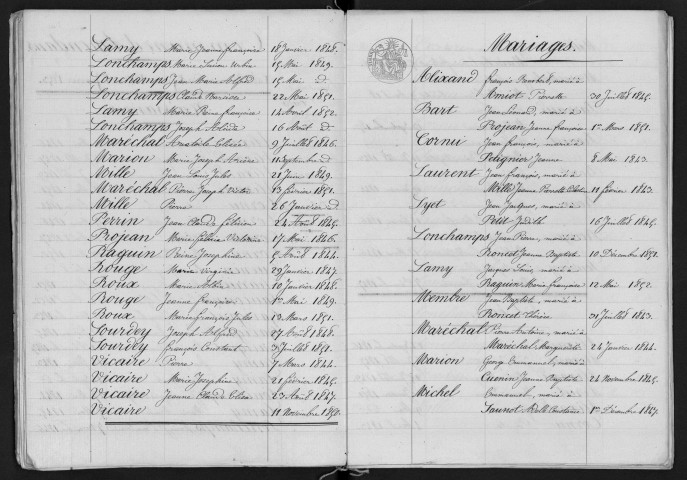 Lamy Marie Jeanne françoise 18 Janvier 1848.
Lonchamps Marie 15 Mai 1849.
Lonchamps Jean Marie Alfred 15 Mai d
Lonchamps Claude 22 Mai 1851.
Lamy Marie françoise 14 Avril 1852.
Lonchamps Joseph 16 Août d
Maréchal 9 Juillet 1846.
Marion Marie Joseph 11 Septembre d
Mille Jean Louis Jules 21 Juin 1849.
Maréchal Pierre Joseph 13 février 1851.
Mille Pierre 26 Janvier d
Perrin Jean Claude 24 Août 1845.
Projean Marie 17 Mai 1846.
Raguin Reine Josephine 5 Août 1844.
Rouge Marie Virginie 29 Janvier 1847.
Roux Marie 10 Janvier 1848.
Rouge Jeanne françoise 1er Mai 1849.
Roux Marie françois Jules 12 Mars 1851.
Lourdey Joseph Alfred 27 Août 1848.
Lourdey françois Constant 3 Juillet 1851.
Vicaire Pierre 7 Mars 1844.
Vicaire Marie Josephine 21 février 1845.
Vicaire Jeanne Claude 23 Août 1847.
Vicaire 11 Novembre 1850.
Mariages.
Alixand françois marié à
Amiot Pierrette 30 Juillet 1845.
Bart Jean Léonard, marié à
Projean Jeanne françoise 1er Mars 1851.
Cornu Jean françois, marié à
Jeanne 8 Mai 1843.
Laurent Jean françois, marié à
Mille Jeanne 11 février 1843.
Lyet Jean Jacques, marié à
Petit Judith 16 Juillet 1845.
Lonchamps Jean Pierre, marié à
Poncet Jeanne Baptiste 10 Décembre 1851.
Lamy Jacques marié à
Raguin Marie françoise 12 Mai 1852.
Membre Jean Baptiste, marié à
Poncet 31 Juillet 1843.
Maréchal Pierre Antoine, marié à
Maréchal Marguerite 24 Janvier 1844.
Marion Georg Emmanuel, marié à
Cuenin Jeanne Baptiste 24 Novembre 1845.
Michel Emmanuel, marié à
Jaunot 1er Décembre 1847.